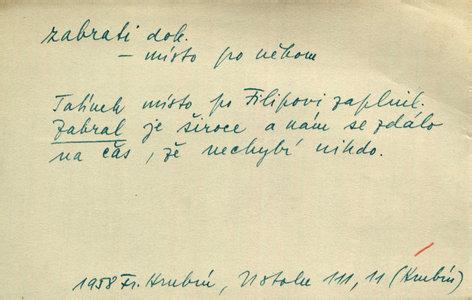 zabrati dok.
— místo po někom
Tatínek místo po Filipovi zaplnil.
Zabral je široce a nám se zdálo
na čas, že nechybí nikdo.
1958 Fr. Hrubín, U stolu 111, 11 (Hrubín)